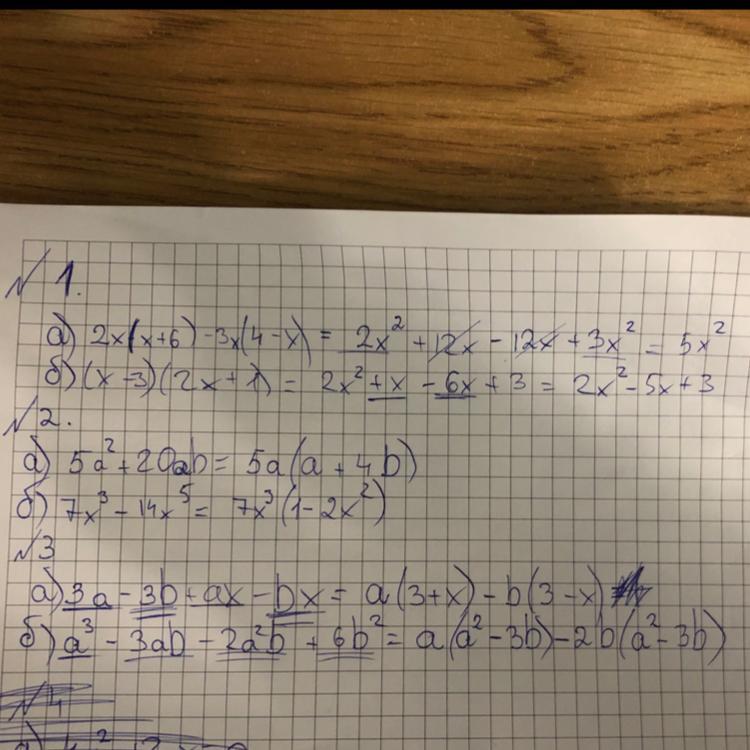 № 1.
а) 2x(x+6) - 3x(4-x) = 2x² + 12x - 12x + 3x² = 5x²
б) (x-3)(2x+1) = 2x² + x - 6x + 3 = 2x² - 5x + 3
№ 2.
а) 5a² + 20ab = 5a(a + 4b)
б) 7x³ - 14x⁵ = 7x³(1 - 2x²)
№ 3
а) 3a - 3b + ax - bx = a(3+x) - b(3-x)
б) a³ - 3ab - 2a²b + 6b² = a(a² - 3b) - 2b(a² - 3b)
№ 4